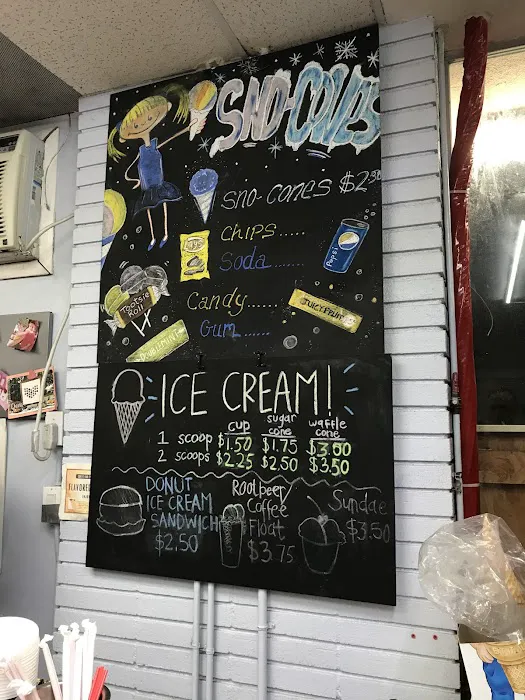 SNO-CONES
SNO-CONES $2.50
CHIPS.....
Soda.......
Pepsi
Candy......
Tootsie Roll
JUICY FRUIT
Gum......
DOUBLEMINT
ICE CREAM!
cup sugar cone waffle cone
1 scoop $1.50 $1.75 $3.00
2 scoops $2.25 $2.50 $3.50
DONUT ICE CREAM SANDWICH $2.50
Rootbeer/ Coffee Float $3.75
Sundae $3.50